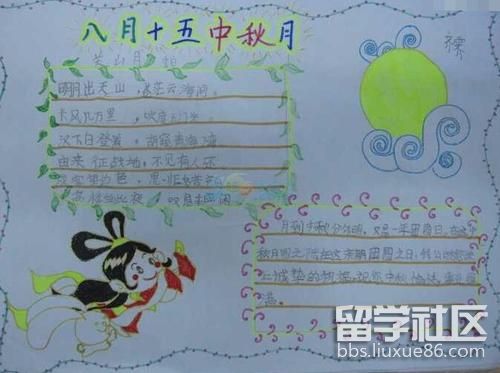 八月十五中秋月
关山月
明月出天山，苍茫云海间。
长风几万里，吹度玉门关
汉下白登道，胡窥青海湾
由来征战地，不见有人还
戍客望边色，思归多苦颜
高楼当此夜，叹息未应闲
月到中秋分外明，又是一年团圆日，在这个
秋月明之际在这亲朋团圆之日，
上诚挚的祝福，祝您中秋愉快，
满。
留学社区
bbs.liuxue86.com